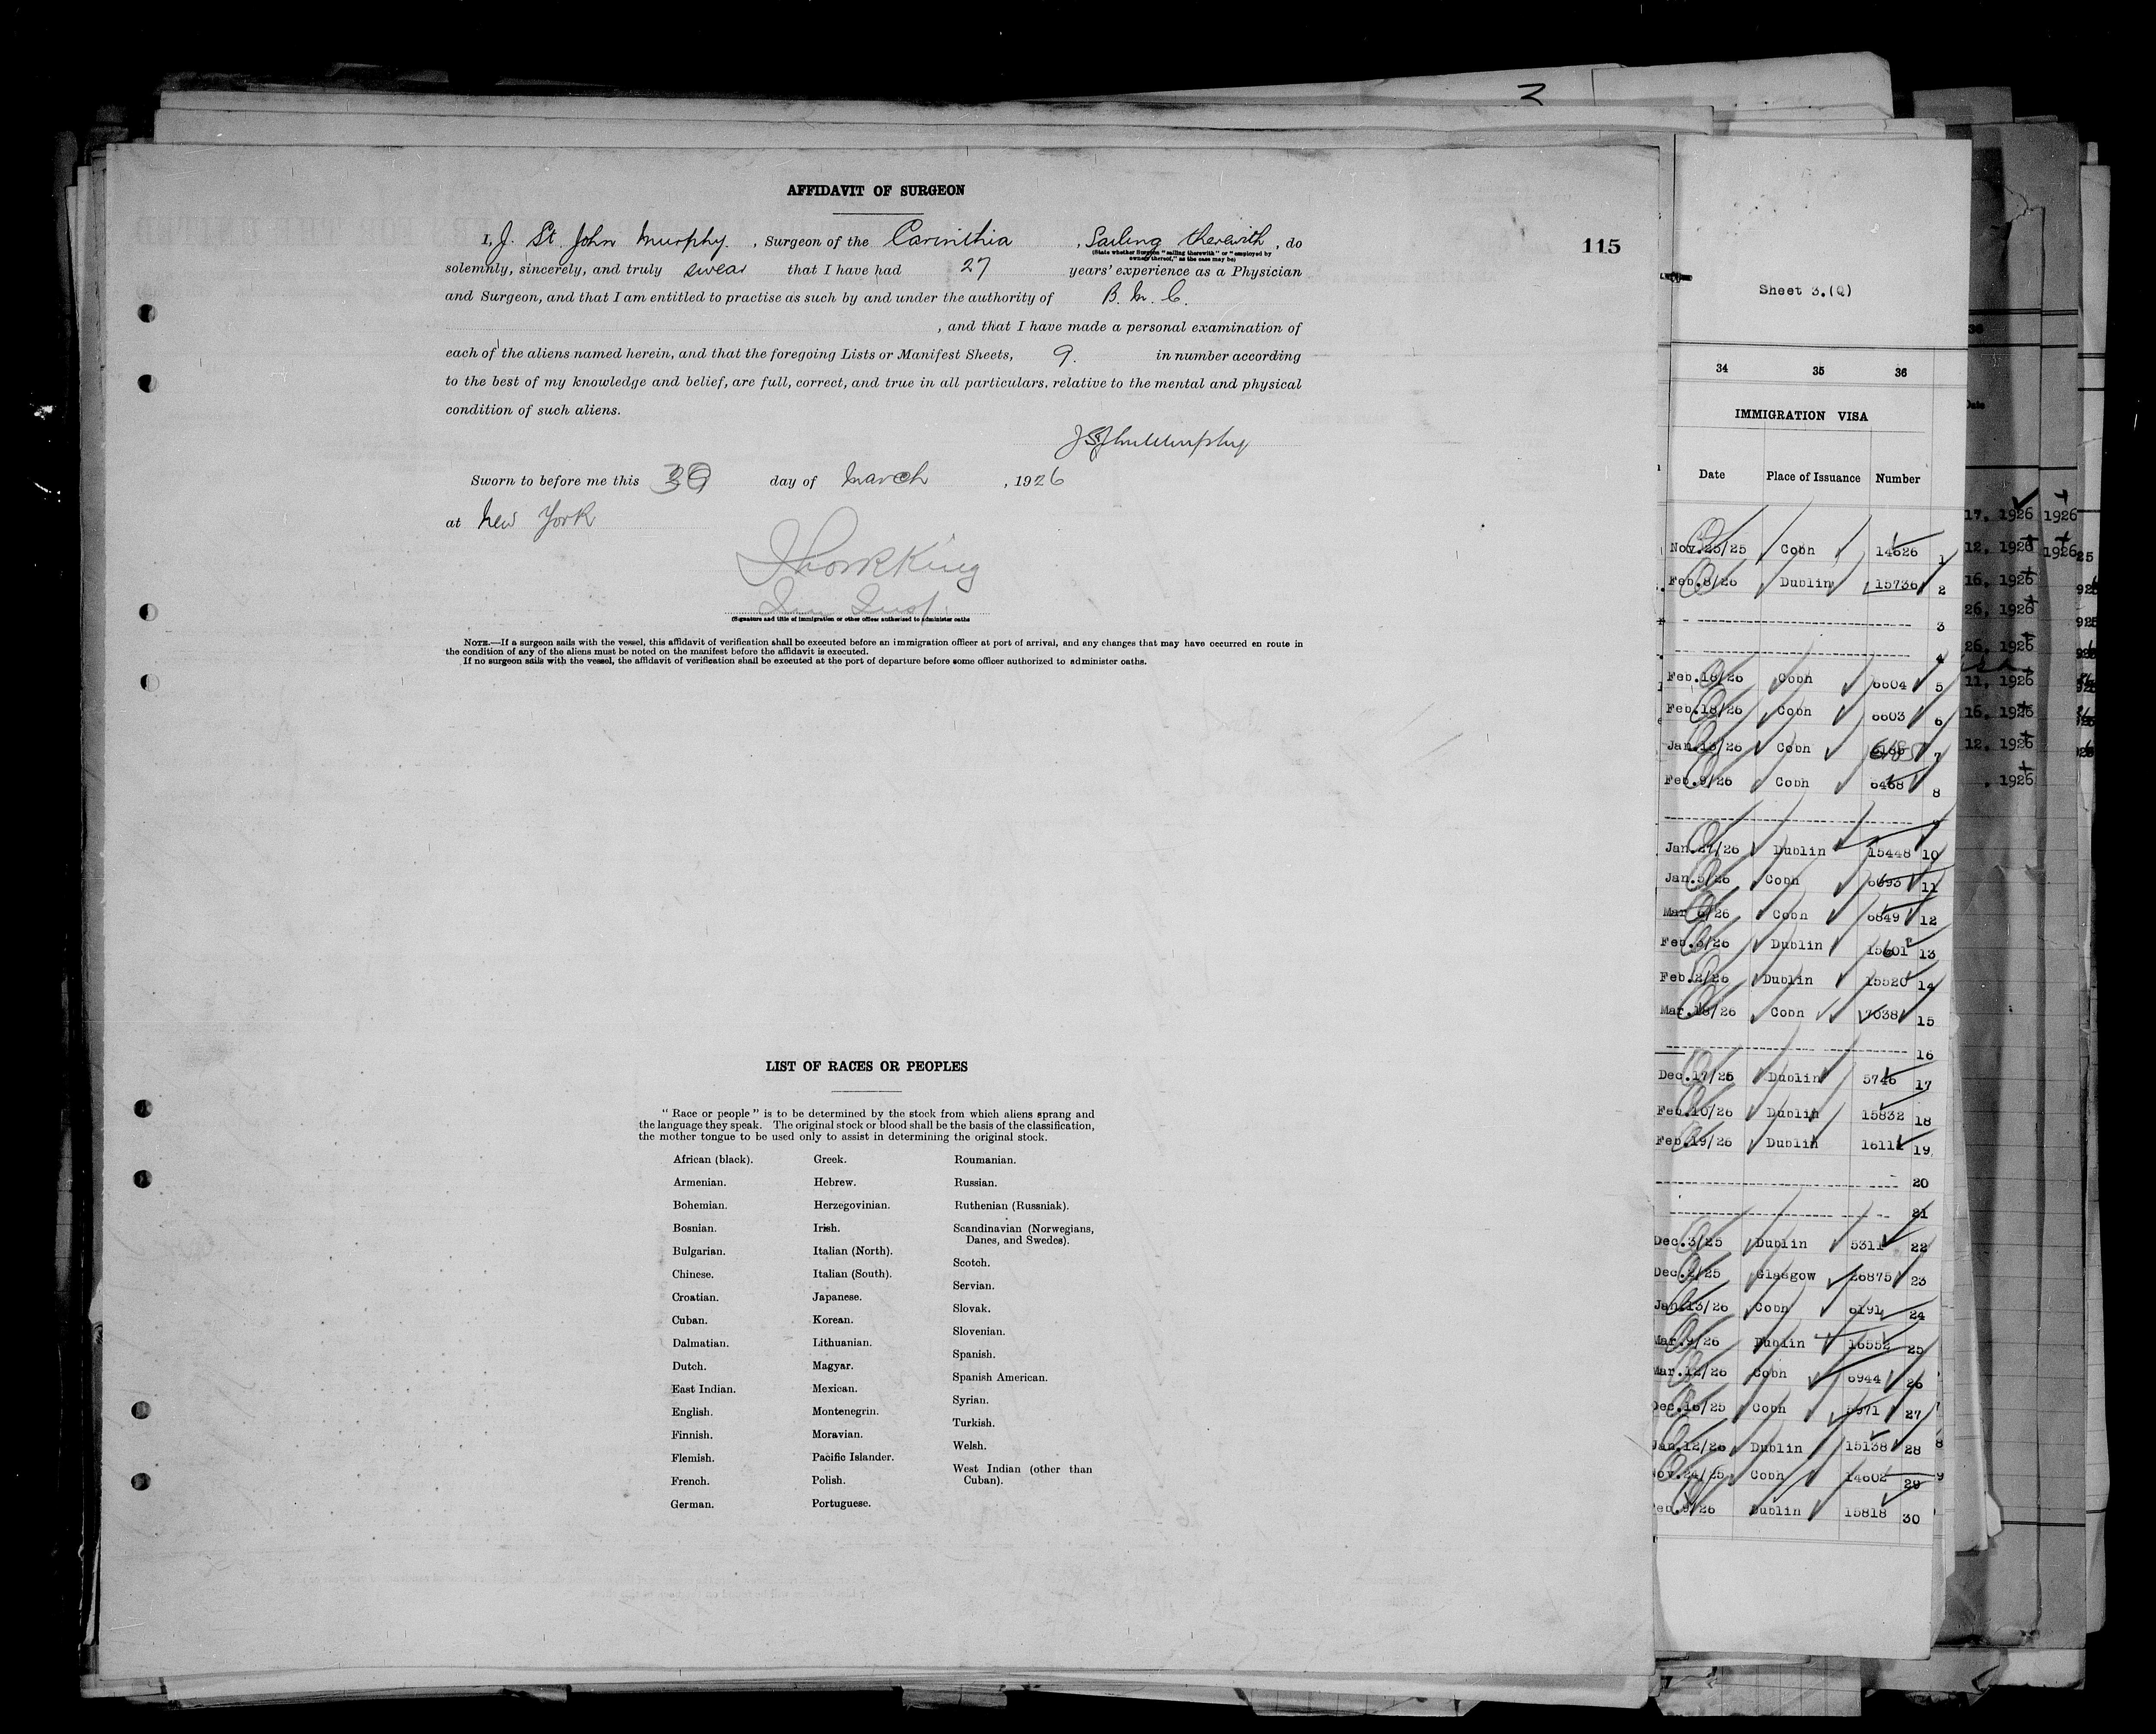 AFFIDAVIT OF SURGEON
I, J. St. John Murphy. , Surgeon of the Carinthia , Sailing therewith , do
(State whether Surgeon "sailing therewith" or "employed by
owners thereof," as the case may be)
115
solemnly, sincerely, and truly swear that I have had 27 years' experience as a Physician
and Surgeon, and that I am entitled to practise as such by and under the authority of B. M. C.
, and that I have made a personal examination of
each of the aliens named herein, and that the foregoing Lists or Manifest Sheets, 9. in number according
to the best of my knowledge and belief, are full, correct, and true in all particulars, relative to the mental and physical
condition of such aliens.
J St John Murphy
Sworn to before me this 30 day of March , 1926
at New York
(Signature and title of immigration or other officer authorized to administer oaths
NOTE.—If a surgeon sails with the vessel, this affidavit of verification shall be executed before an immigration officer at port of arrival, and any changes that may have occurred en route in
the condition of any of the aliens must be noted on the manifest before the affidavit is executed.
If no surgeon sails with the vessel, the affidavit of verification shall be executed at the port of departure before some officer authorized to administer oaths.
LIST OF RACES OR PEOPLES
"Race or people" is to be determined by the stock from which aliens sprang and
the language they speak. The original stock or blood shall be the basis of the classification,
the mother tongue to be used only to assist in determining the original stock.
African (black).
Armenian.
Bohemian.
Bosnian.
Bulgarian.
Chinese.
Croatian.
Cuban.
Dalmatian.
Dutch.
East Indian.
English.
Finnish.
Flemish.
French.
German.
Greek.
Hebrew.
Herzegovinian.
Irish.
Italian (North).
Italian (South).
Japanese.
Korean.
Lithuanian.
Magyar.
Mexican.
Montenegrin.
Moravian.
Pacific Islander.
Polish.
Portuguese.
Roumanian.
Russian.
Ruthenian (Russniak).
Scandinavian (Norwegians,
Danes, and Swedes).
Scotch.
Servian.
Slovak.
Slovenian.
Spanish.
Spanish American.
Syrian.
Turkish.
Welsh.
West Indian (other than
Cuban).
Sheet 3.(Q)
34 35 36
IMMIGRATION VISA
Date Place of Issuance Number
Nov.25/25 Cobh 14626 1
Feb.8/26 Dublin 15736 2
3
4
Feb.18/26 Cobh 6604 5
Feb.18/26 Cobh 6603 6
Jan.13/26 Cobh 7
Feb.9/26 Cobh 6468 8
Jan.27/26 Dublin 15448 10
Jan.5/26 Cobh 6093 11
Mar 6/26 Cobh 6849 12
Feb.3/26 Dublin 15601 13
Feb.2/26 Dublin 15520 14
Mar.18/26 Cobh 7038 15
16
Dec.17/25 Dublin 5746 17
Feb.10/26 Dublin 15832 18
Feb.19/26 Dublin 16111 19
20
21
Dec.3/25 Dublin 5311 22
Dec.2/25 Glasgow 26875 23
Jan.13/26 Cobh 6191 24
Mar.9/26 Dublin 16552 25
Mar.12/26 Cobh 6944 26
Dec.16/25 Cobh 5971 27
Jan.12/26 Dublin 15138 28
Nov.24/25 Cobh 14602 29
Feb.9/26 Dublin 15818 30
17, 1926 1926
12, 1926 1926
16, 1926
26, 1926
26, 1926
11, 1926
16, 1926
12, 1926
, 1926